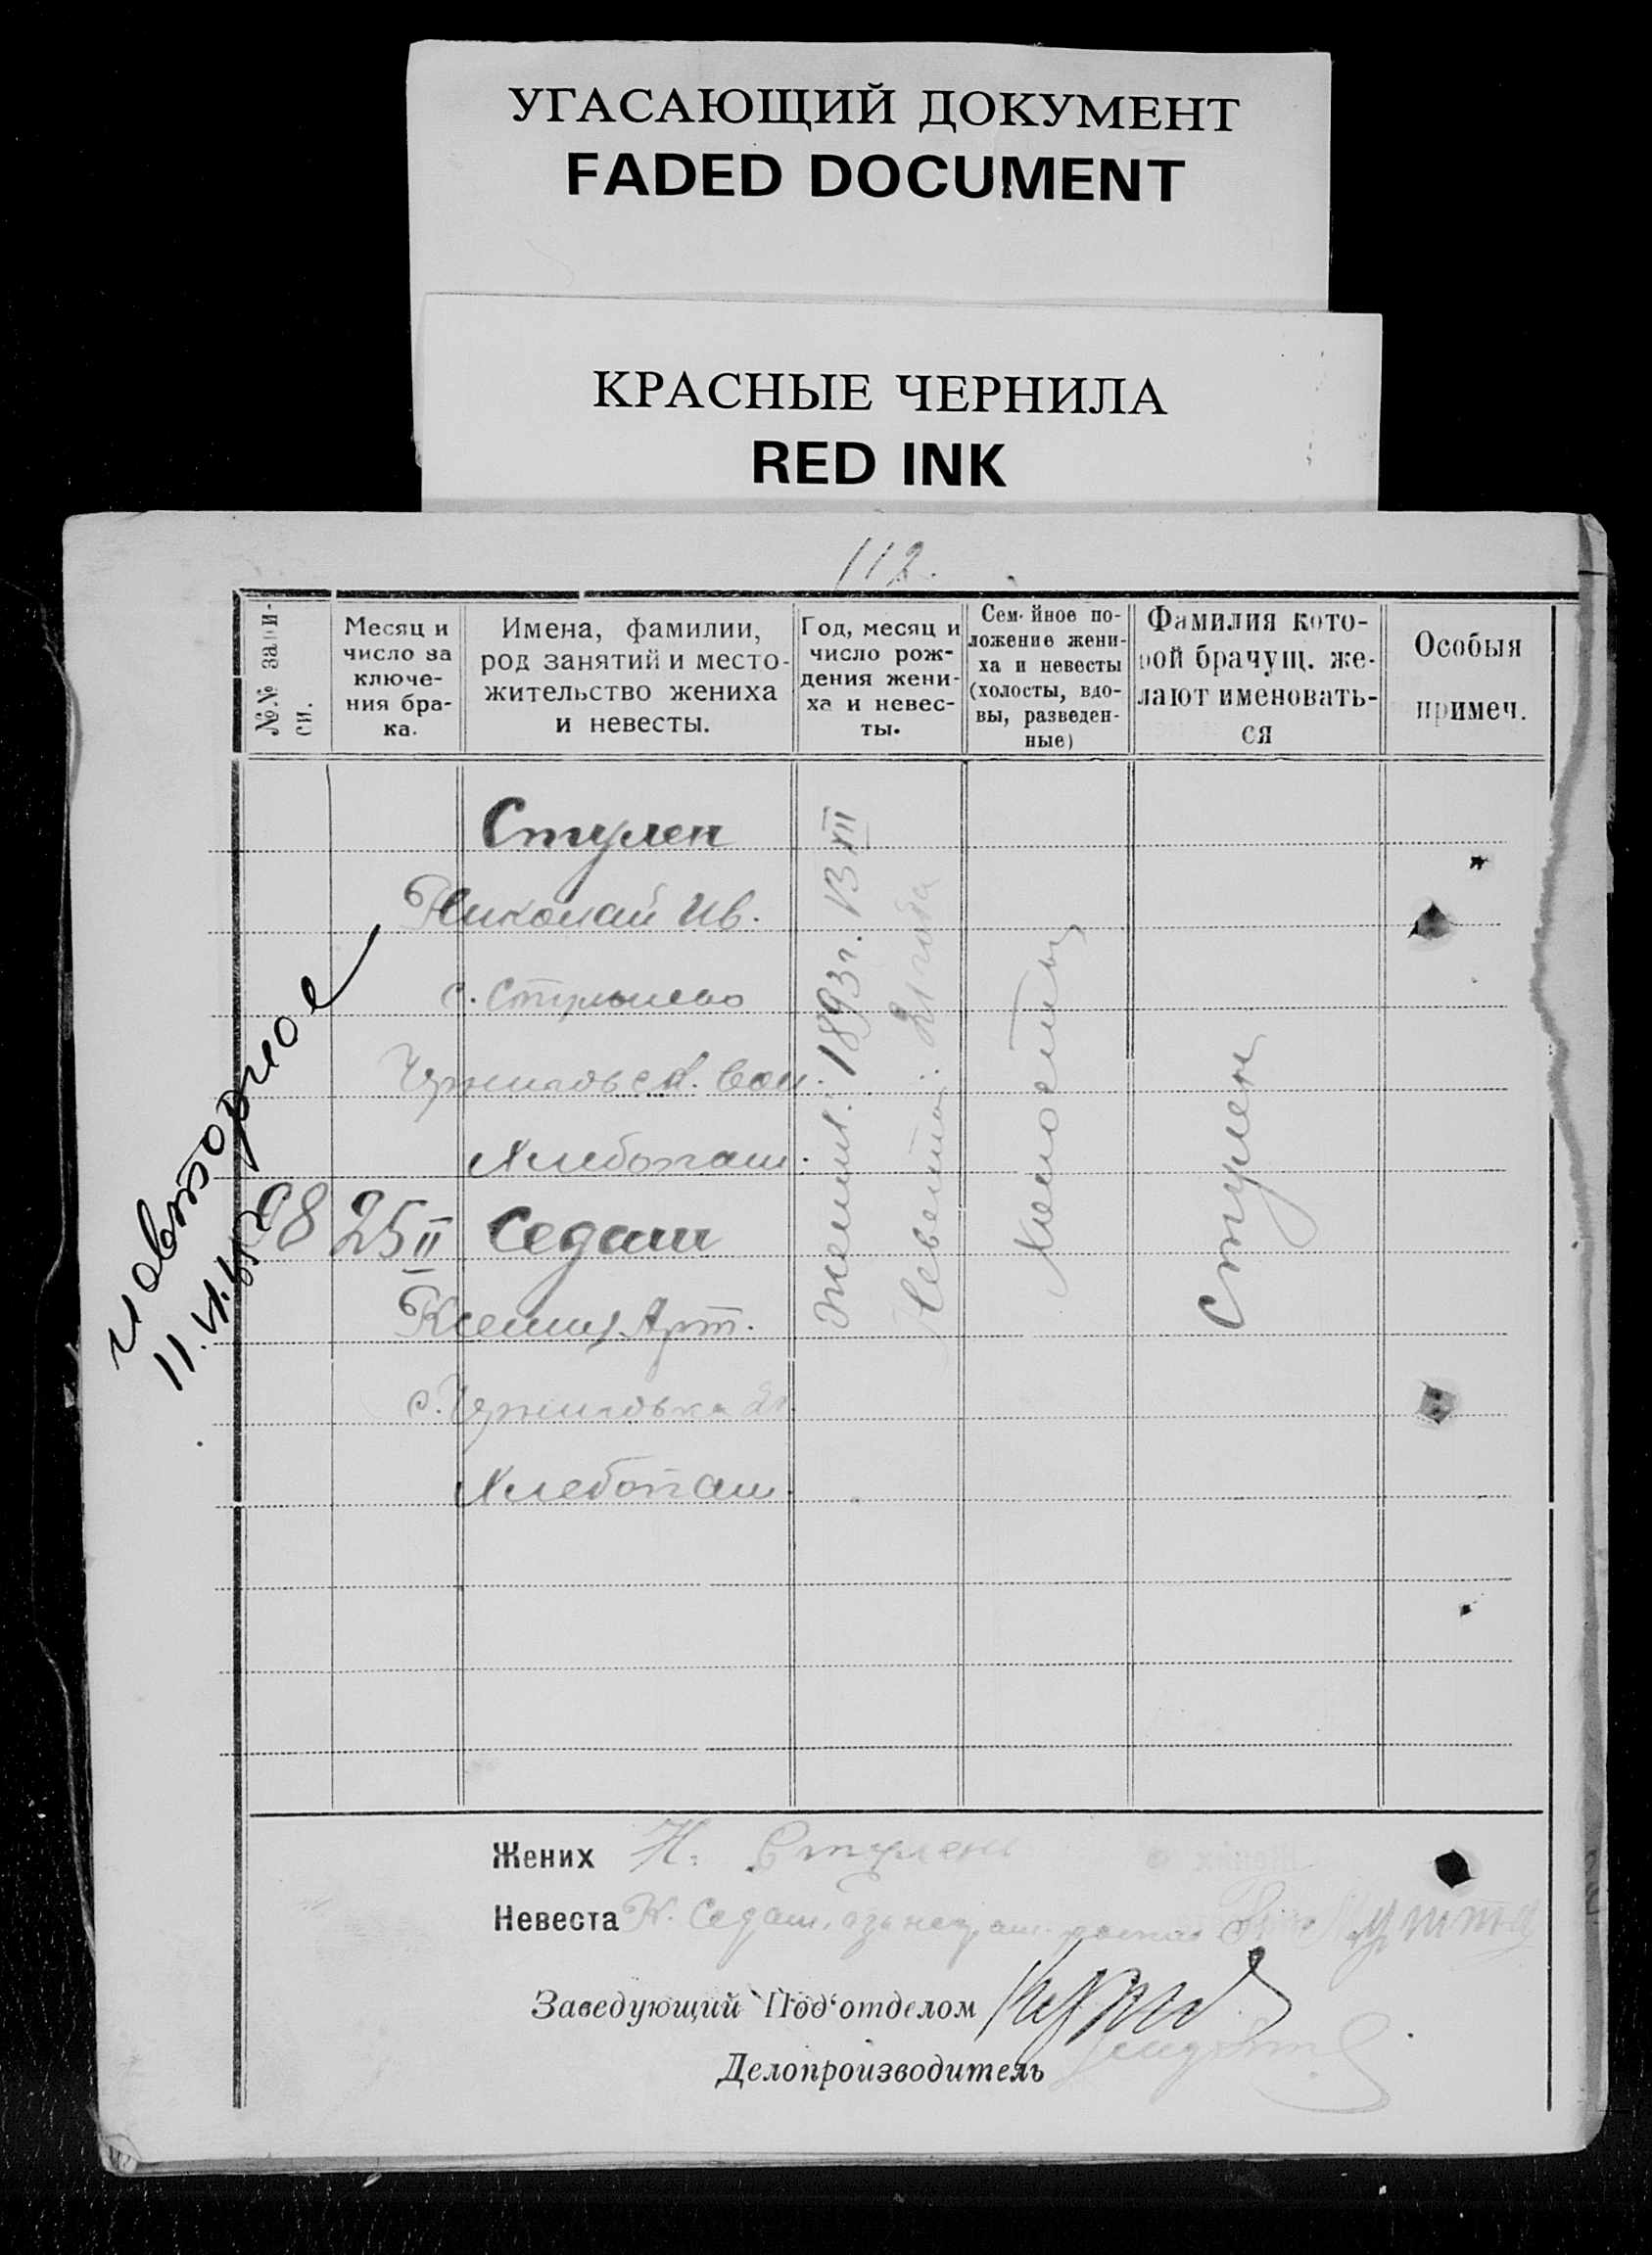 УГАСАЮЩИЙ ДОКУМЕНТ
FADED DOCUMENT
КРАСНЫЕ ЧЕРНИЛА
RED INK
112.
№№ запи-
си.
Месяц и
число за
ключе-
ния бра-
ка.
Имена, фамилии,
род занятий и место-
жительство жениха
и невесты.
Год, месяц и
число рож-
дения жени-
ха и невес-
ты.
Семейное по-
ложение жени-
ха и невесты
(холосты, вдо-
вы, разведен-
ные)
Фамилия кото-
рой брачущ. же-
лают именовать-
ся
Особыя
примеч.
Стулен
Николай Ив.
с.
Хлебопаш.
98
25 II
Седаш
Ксения Арт.
с.
Хлебопаш.
Жених. 1893г. 13 XII
Невеста: 21 года
Холосты
Стулен
повторное
11.VI.
Жених Н. Стулень
Невеста К. Седаш,
Заведующий Под'отделом
Делопроизводитель